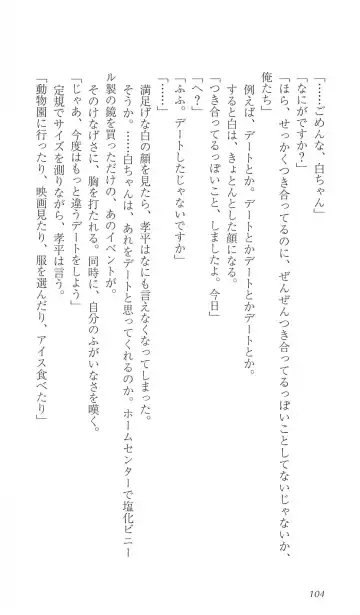 「……ごめんな、白ちゃん」
「なにがですか？」
「ほら、せっかくつき合ってるのに、ぜんぜんつき合ってるっぽいことしてないじゃないか、
俺たち」
例えば、デートとか。デートとかデートとかデートとか。
すると白は、きょとんとした顔になる。
「つき合ってるっぽいこと、しましたよ。今日」
「へ？」
「ふふ。デートしたじゃないですか」
「……」
満足げな白の顔を見たら、孝平はなにも言えなくなってしまった。
そうか。……白ちゃんは、あれをデートと思ってくれてるのか。ホームセンターで塩化ビニー
ル製の鏡を買っただけの、あのイベントが。
そのけなげさに、胸を打たれる。同時に、自分のふがいなさを嘆く。
「じゃあ、今度はもっと違うデートをしよう」
定規でサイズを測りながら、孝平は言う。
「動物園に行ったり、映画見たり、服を選んだり、アイス食べたり」
104